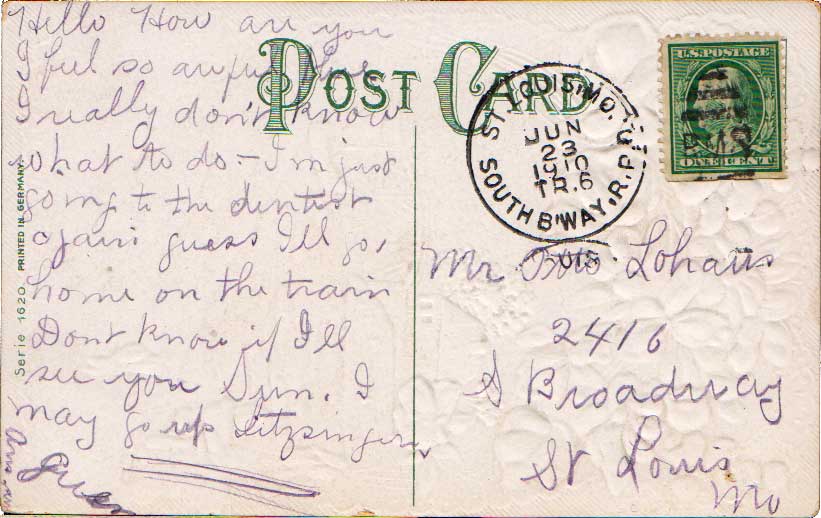 Hello How are you
I feel so awful blue
I really don't know
what to do - I'm just
going to the dentist
again guess I'll go
home on the train
Dont know if I'll
see you Sun. I
may go up Litzsingers
Guess
Serie 1620. PRINTED IN GERMANY.
POST CARD
ST. LOUIS, MO.
JUN
23
1910
TR.6
SOUTH B'WAY, R.P.O.
U.S. POSTAGE
ONE CENT
Mr Otto Lohaus
2416
S Broadway
St Louis
Mo